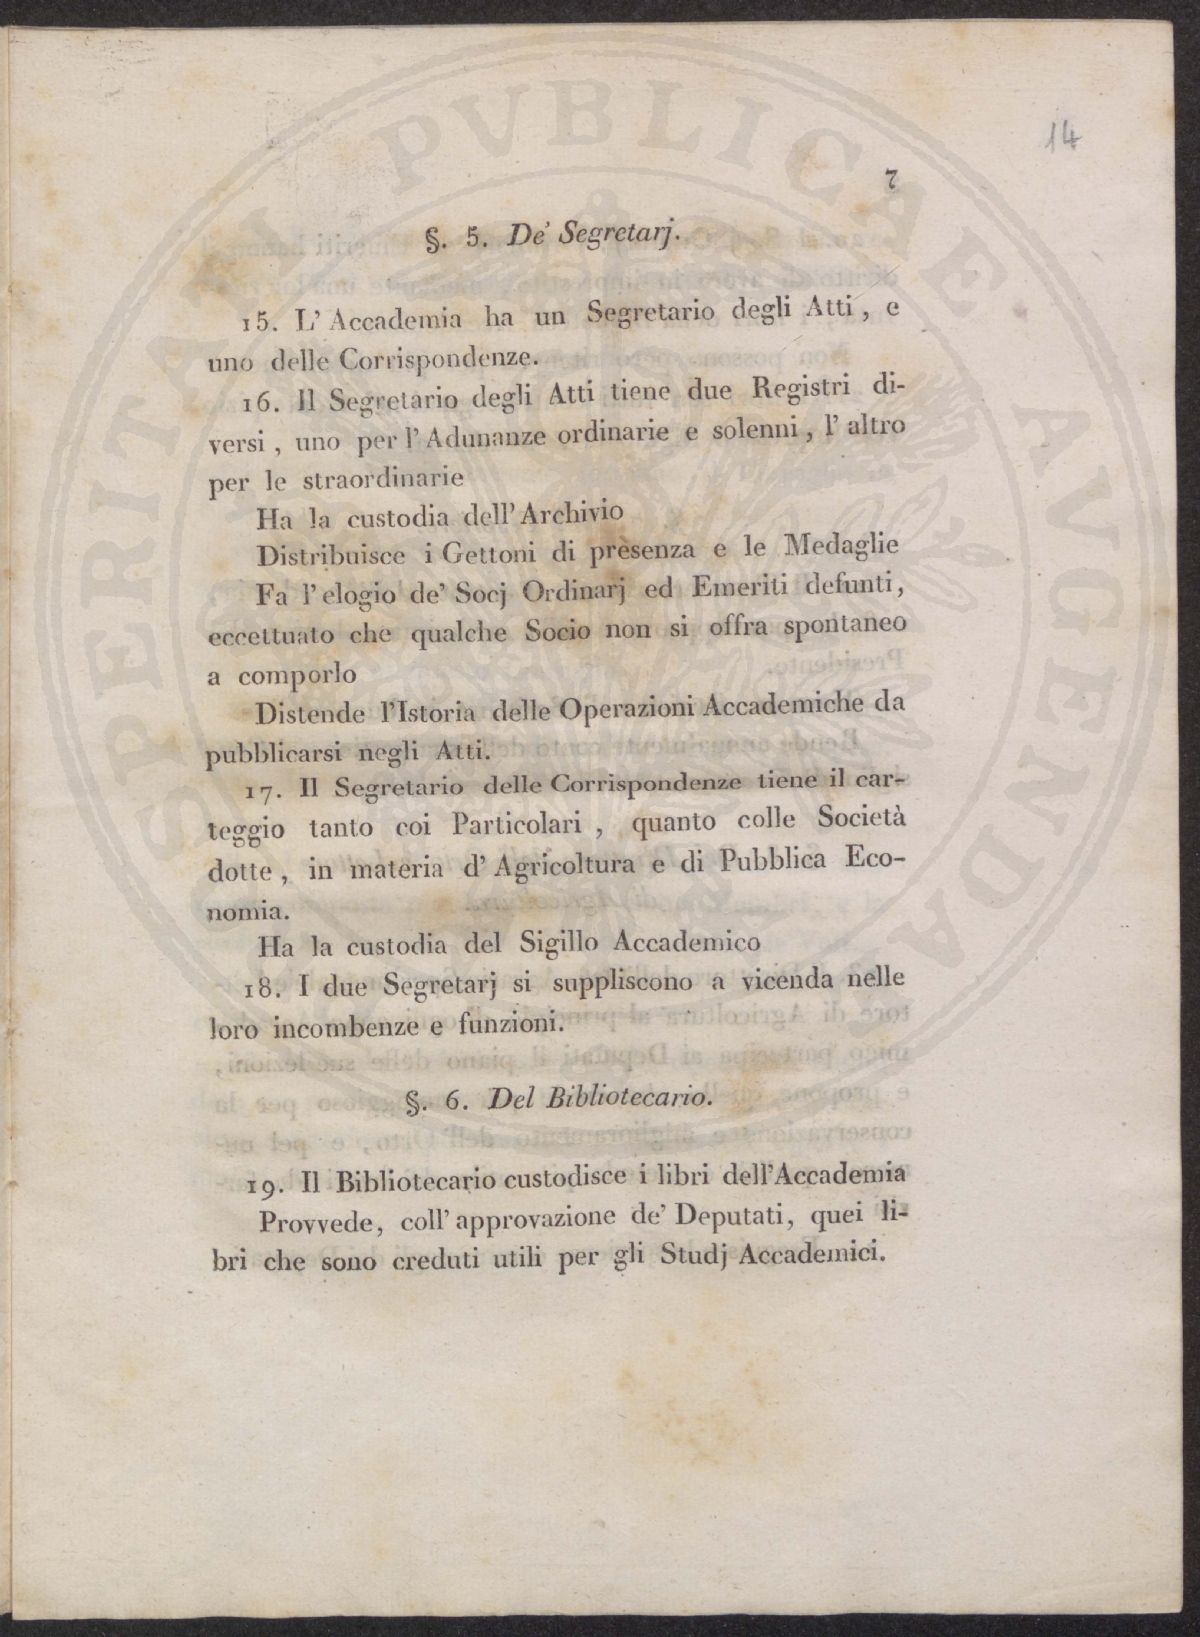 14
7
§. 5. De' Segretarj.
15. L' Accademia ha un Segretario degli Atti, e
uno delle Corrispondenze.
16. Il Segretario degli Atti tiene due Registri di-
versi, uno per l' Adunanze ordinarie e solenni, l' altro
per le straordinarie
Ha la custodia dell' Archivio
Distribuisce i Gettoni di presenza e le Medaglie
Fa l' elogio de' Socj Ordinarj ed Emeriti defunti,
eccettuato che qualche Socio non si offra spontaneo
a comporlo
Distende l'Istoria delle Operazioni Accademiche da
pubblicarsi negli Atti.
17. Il Segretario delle Corrispondenze tiene il car-
teggio tanto coi Particolari, quanto colle Società
dotte, in materia d' Agricoltura e di Pubblica Eco-
nomia.
Ha la custodia del Sigillo Accademico
18. I due Segretarj si suppliscono a vicenda nelle
loro incombenze e funzioni.
§. 6. Del Bibliotecario.
19. Il Bibliotecario custodisce i libri dell'Accademia
Provvede, coll' approvazione de' Deputati, quei li-
bri che sono creduti utili per gli Studj Accademici.
PROSPERITATI PVBLICAE AVGENDAE